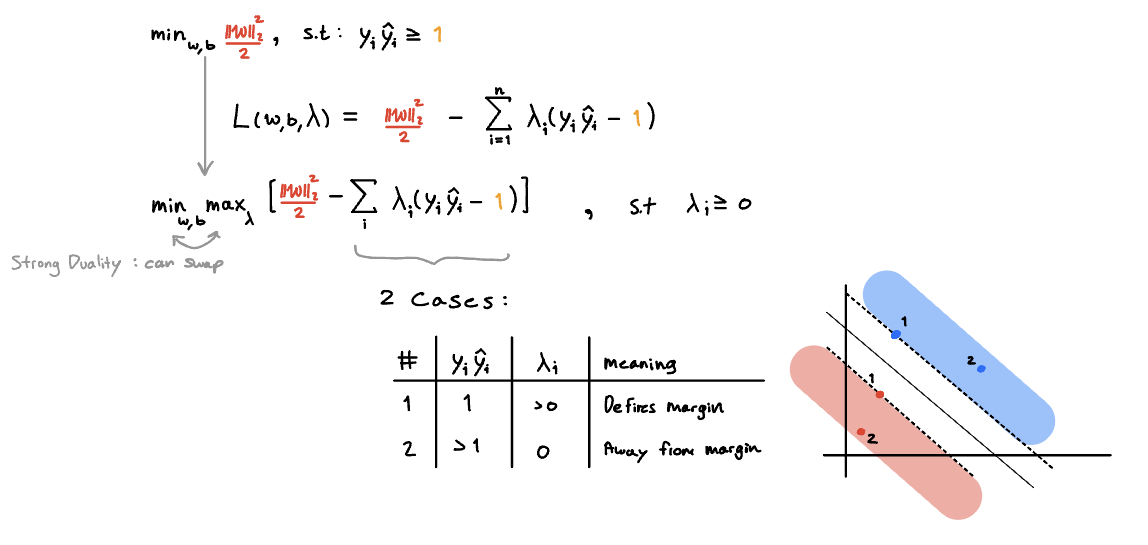 min_{w,b} ||w||₂²/2 , s.t : yᵢ ŷᵢ ≥ 1
L(w,b,λ) = ||w||₂²/2 - ∑_{i=1}^{n} λᵢ(yᵢ ŷᵢ - 1)
min_{w,b} max_λ [||w||₂²/2 - ∑_i λᵢ(yᵢ ŷᵢ - 1)] , s.t λᵢ ≥ 0
Strong Duality : can swap
2 Cases:
# yᵢ ŷᵢ λᵢ meaning
1 1 >0 Defines margin
2 >1 0 Away from margin
1
2
1
2